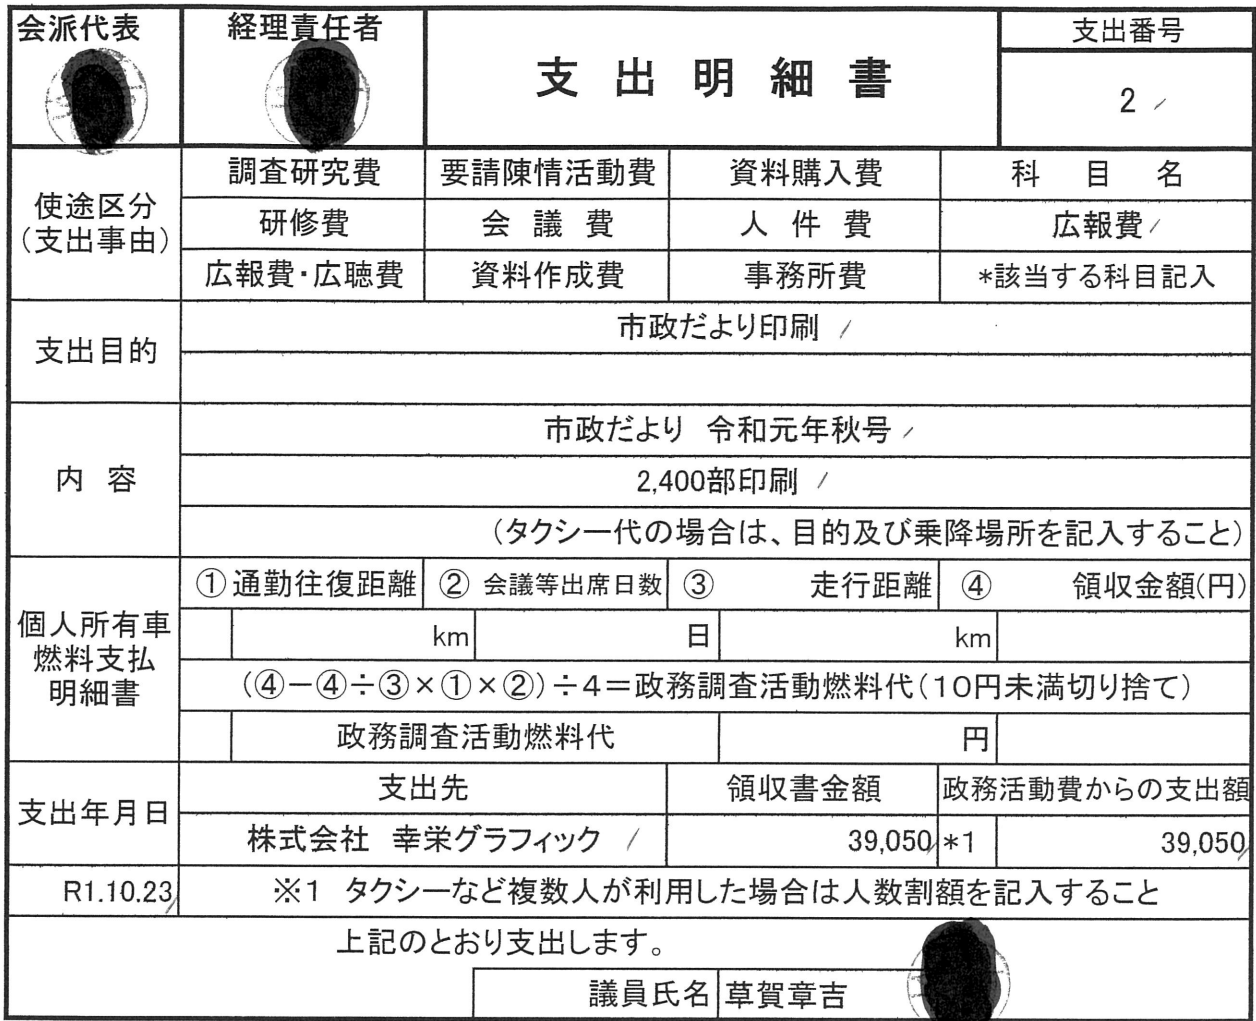 会派代表 経理責任者 支出明細書 支出番号
2
使途区分
(支出事由)
調査研究費 要請陳情活動費 資料購入費 科目名
研修費 会議費 人件費 広報費
広報費・広聴費 資料作成費 事務所費 *該当する科目記入
支出目的
市政だより印刷
内容
市政だより 令和元年秋号
2,400部印刷
(タクシー代の場合は、目的及び乗降場所を記入すること)
個人所有車
燃料支払
明細書
①通勤往復距離 ② 会議等出席日数 ③ 走行距離 ④ 領収金額(円)
km 日 km
(④-④÷③×①×②)÷4=政務調査活動燃料代(10円未満切り捨て)
政務調査活動燃料代 円
支出年月日
支出先 領収書金額 政務活動費からの支出額
株式会社 幸栄グラフィック 39,050 *1 39,050
R1.10.23 ※1 タクシーなど複数人が利用した場合は人数割額を記入すること
上記のとおり支出します。
議員氏名 草賀章吉